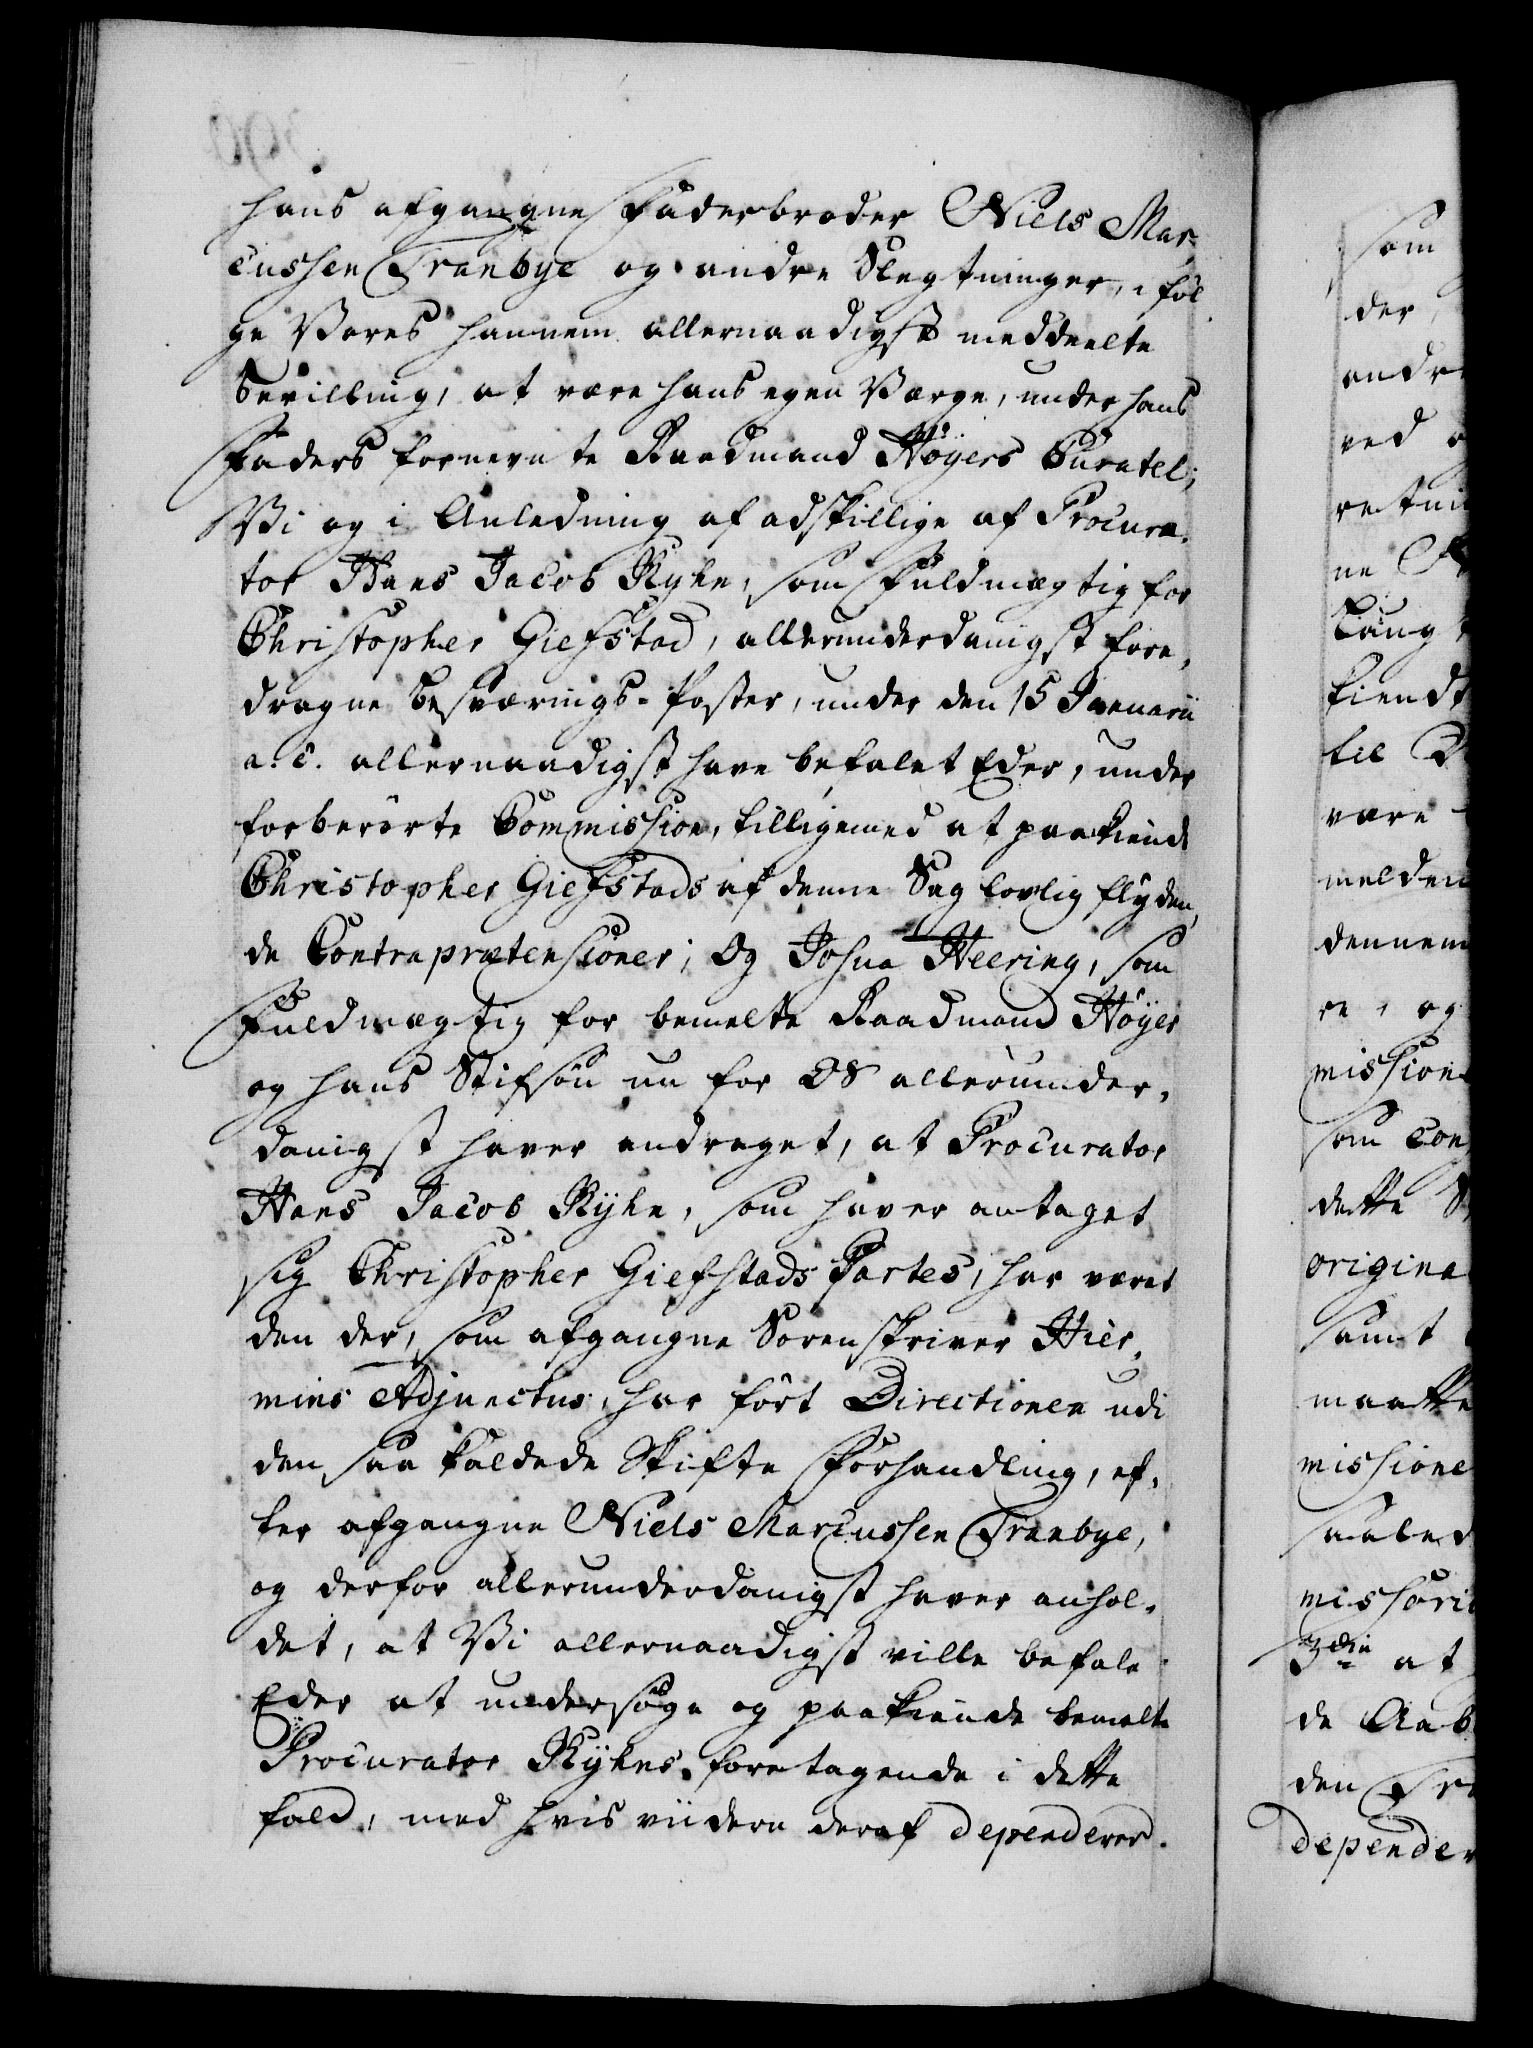 hans afgangne Faderbroder Niels Mar-
cussen Tranbye og andre Slegtninger, i føl
ge Vores hannem allernaadigst meddeelte
Bevilling, at være hans egen Værge, under hans
Faders fornevnte Raadmand Høyers Curatel;
Vi og i Anledning af adskillige af Procura-
tor Hans Jacob Ryhn, som Fuldmægtig for
Christopher Giefstad, allerunderdanigst fore-
dragne Besværings-Poster, under den 15 Januarii
a. c. allernaadigst have befalet Eder, under
forberørte Commission, tilligemed at paakiende
Christopher Giefstads af denne Sag lovlig flyden-
de Contraprætensioner; Og Josua Heering, som
Fuldmægtig for bemelte Raadmand Høyer
og hans Stifsøn nu for OS allerunder-
danigst haver andraget, at Procurator
Hans Jacob Ryhn, som haver antaget
sig Christopher Giefstads Partes, har været
den der, som afgangne Sorenskriver Hier-
mins Adjunctus, har ført Directionen udi
den saa kaldede Skifte Forhandling, ef-
ter afgangne Niels Marcussen Tranbye,
og derfor allerunderdanigst haver anhol-
det, at Vi allernaadigst ville befale
Eder at undersøge og paakiende bemelte
Procurator Ryhns foretagende i dette
fald, med hvis viidere deraf dependerer.
som
der
andre
ved
retni
ne
kiendt
til
være
melden
dennem
re, og
mission
som Con
dette
origina
samt
maatte
missione
saaled
missori
3die at
de
den Tra
depender